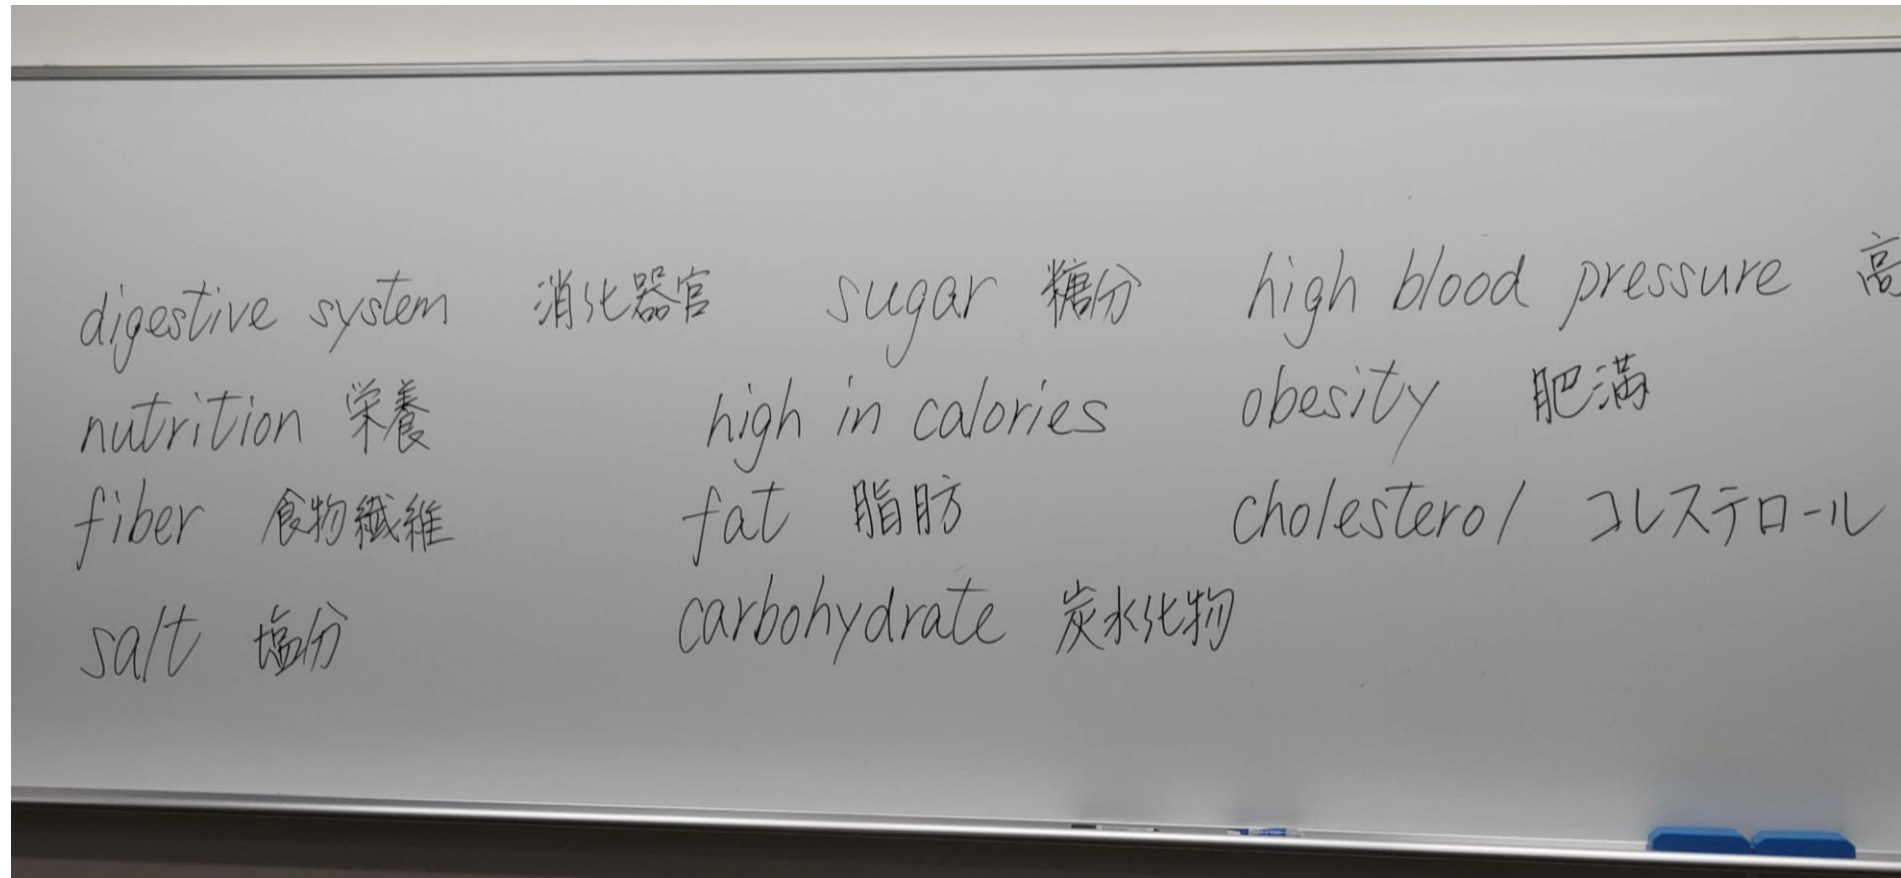 digestive system 消化器官 sugar 糖分 high blood pressure 高
nutrition 栄養 high in calories obesity 肥満
fiber 食物繊維 fat 脂肪 cholesterol コレステロール
salt 塩分 carbohydrate 炭水化物